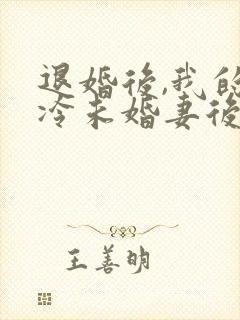 退婚后,我的
冷未婚妻後
王善明